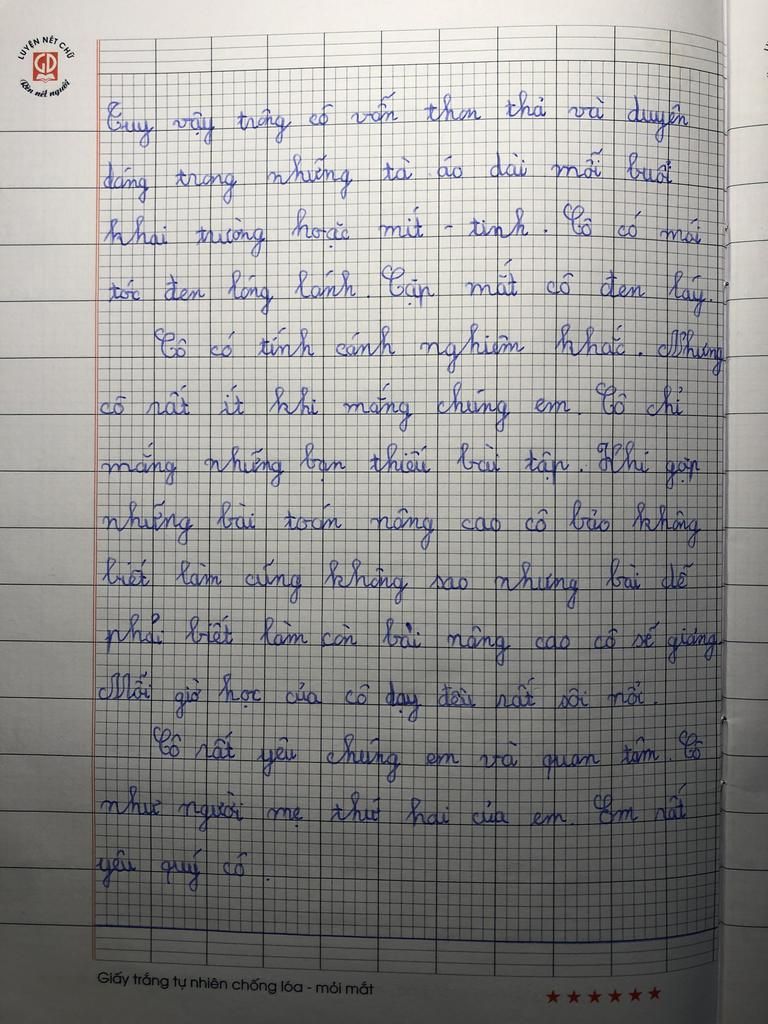 LUYỆN NÉT CHỮ
GD
Rèn nết người
Tuy vậy trông cô vẫn thon thả và duyên
dáng trong những tà áo dài mỗi buổi
khai trường hoặc mít - tinh. Cô có mái
tóc đen lóng lánh. Cặp mắt cô đen láy.
Cô có tính cánh nghiêm khắc. Nhưng
cô rất ít khi mắng chúng em. Cô chỉ
mắng những bạn thiếu bài tập. Khi gặp
những bài toán nâng cao cô bảo không
biết làm cũng không sao nhưng bài dễ
phải biết làm còn bài nâng cao cô sẽ giảng.
Mỗi giờ học của cô dạy đều rất sôi nổi.
Cô rất yêu chúng em và quan tâm. Cô
như người mẹ thứ hai của em. Em rất
yêu quý cô.
Giấy trắng tự nhiên chống lóa - mỏi mắt